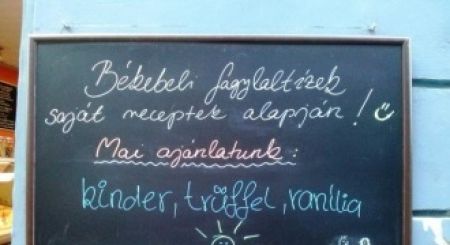 Békebeli fagylaltízek
saját receptek alapján!
Mai ajánlatunk:
kinder, trüffel, vanília